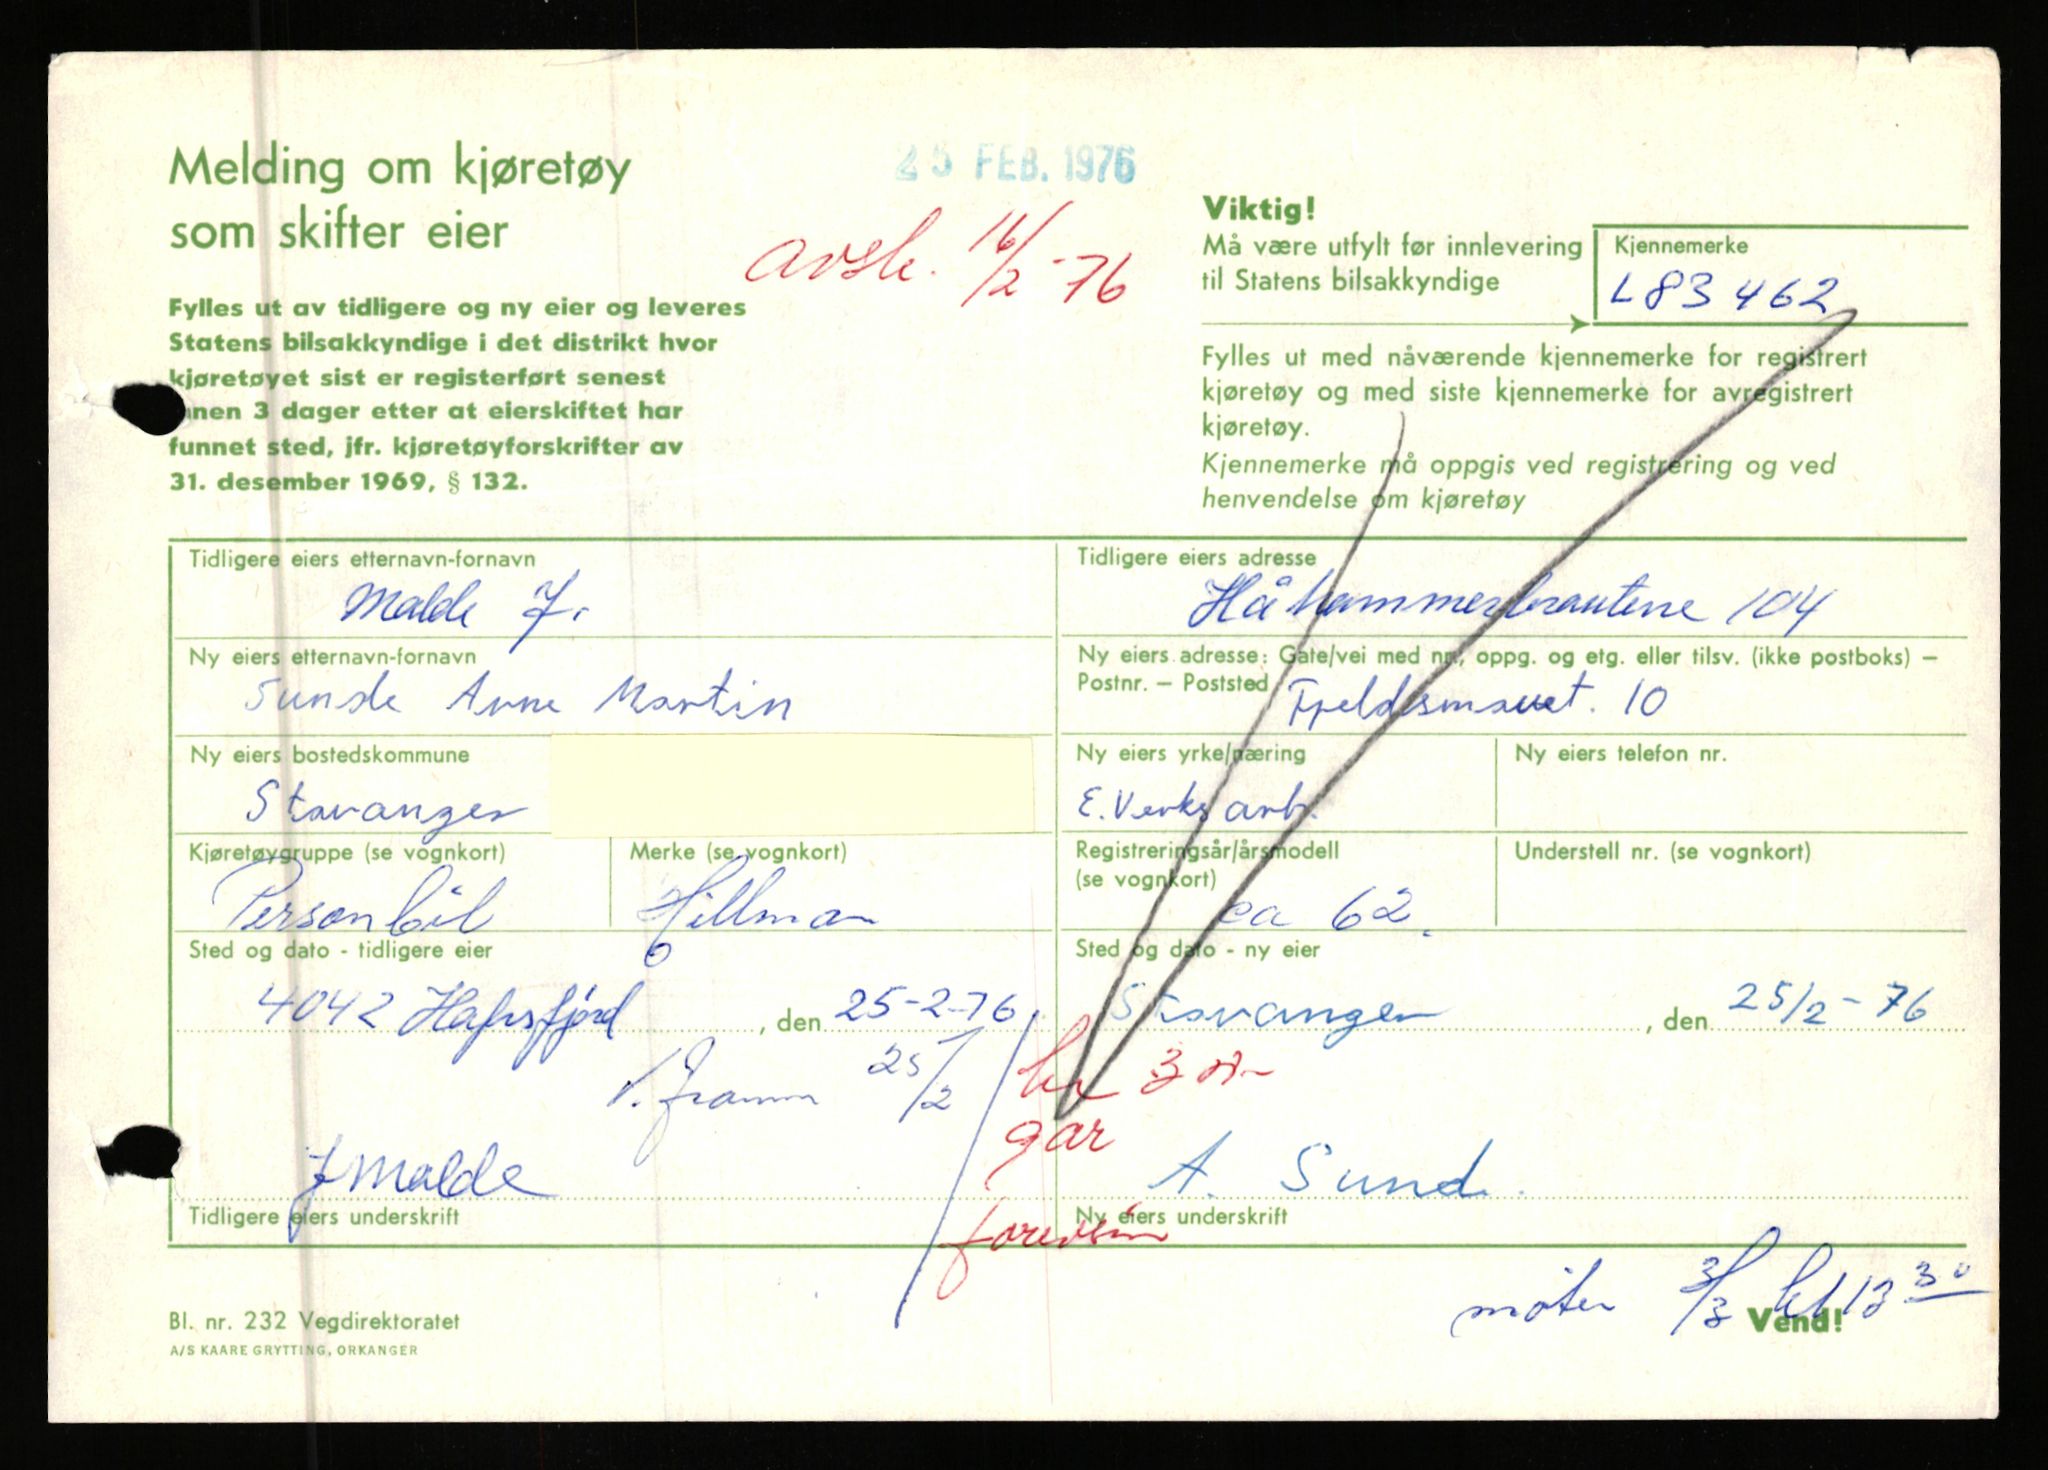 Melding om kjøretøy
som skifter eier
25 FEB. 1976
avsk. 16/2-76
Fylles ut av tidligere og ny eier og leveres
Statens bilsakkyndige i det distrikt hvor
kjøretøyet sist er registerført senest
innen 3 dager etter at eierskiftet har
funnet sted, jfr. kjøretøyforskrifter av
31. desember 1969, § 132.
Viktig!
Må være utfylt før innlevering
til Statens bilsakkyndige
Kjennemerke
L 83462
Fylles ut med nåværende kjennemerke for registrert
kjøretøy og med siste kjennemerke for avregistrert
kjøretøy.
Kjennemerke må oppgis ved registrering og ved
henvendelse om kjøretøy
Tidligere eiers etternavn-fornavn
Malde J.
Tidligere eiers adresse
Håhammerbrautene 104
Ny eiers etternavn-fornavn
Sunde Arne Martin
Ny eiers adresse: Gate/vei med nr., oppg. og etg. eller tilsv. (ikke postboks) –
Postnr. – Poststed
10
Ny eiers bostedskommune
Stavanger
Ny eiers yrke/næring
E.Verks arb.
Ny eiers telefon nr.
Kjøretøygruppe (se vognkort)
Personbil
Merke (se vognkort)
Hillman
Registreringsår/årsmodell
(se vognkort)
ca 62.
Understell nr. (se vognkort)
Sted og dato - tidligere eier
4042 Hafrsfjord, den 25-2-76
Sted og dato - ny eier
Stavanger, den 25/2-76
25/2
kr
gar
J Malde
A. Sund.
Tidligere eiers underskrift
Ny eiers underskrift
møter 3/3 kl 13 30
Bl. nr. 232 Vegdirektoratet
Vend!
A/S KAARE GRYTTING, ORKANGER